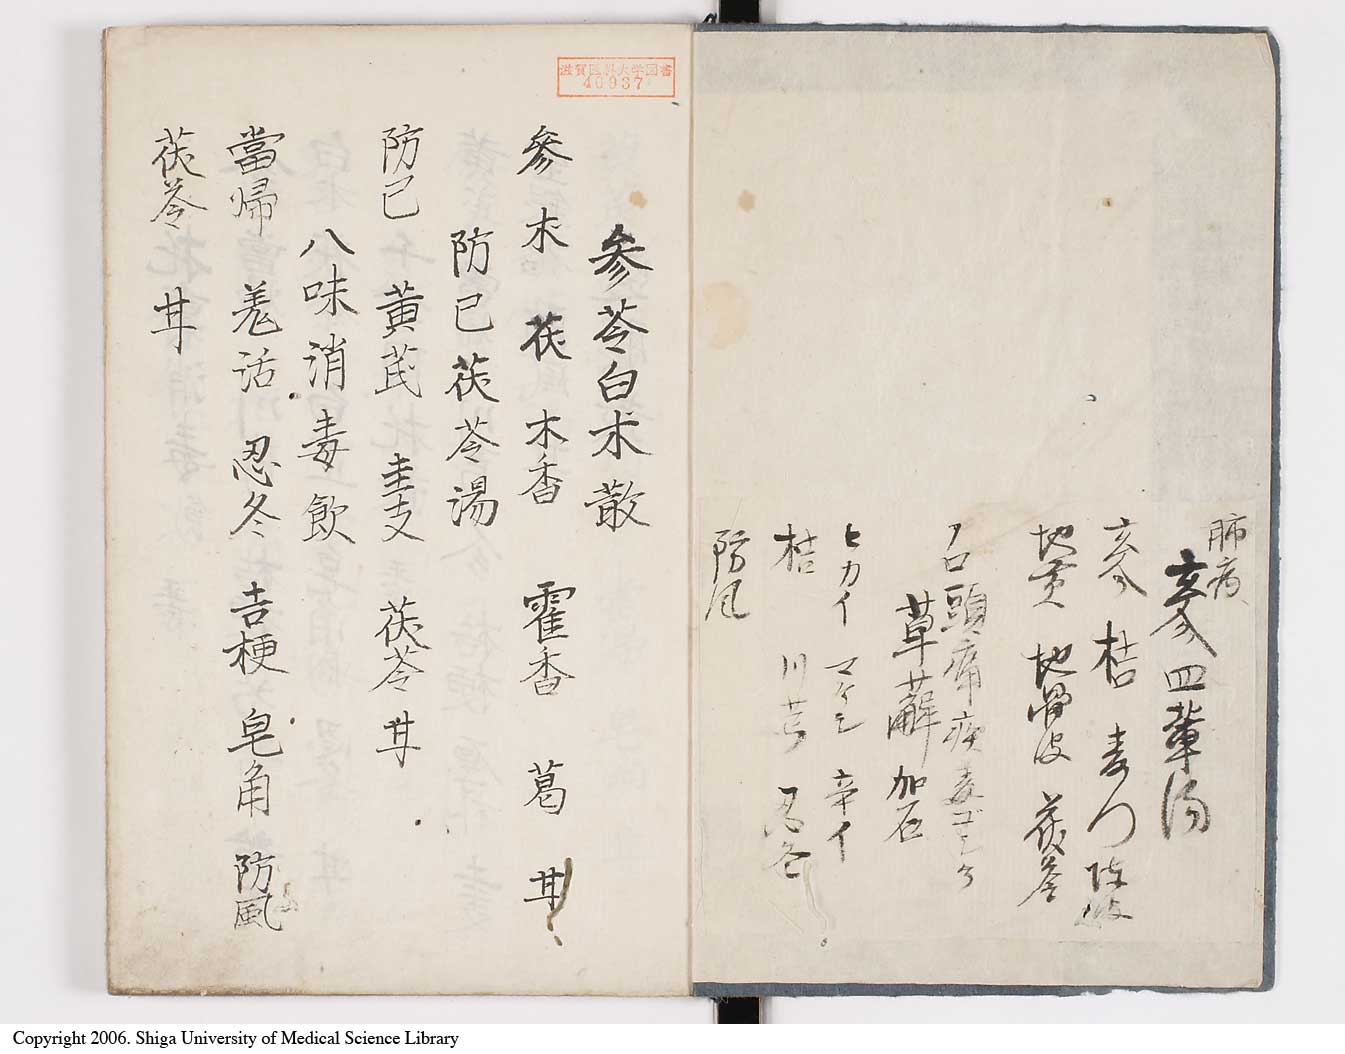 肺病
玄参四輩湯
玄参 桔 麦門 陳皮
地黄 地骨皮 茯苓
頭痛
草薢 加石
ヒカイ マケミ 辛イ
桔 川芎 忍冬
防风
滋賀医科大学図書
40937
参苓白朮散
參 木 茯 木香 霍香 葛 甘
防已茯苓湯
防已 黄芪 圭支 茯苓 甘
八味消毒飲
當帰 羗活 忍冬 吉梗 皂角 防風
茯苓 甘
Copyright 2006. Shiga University of Medical Science Library